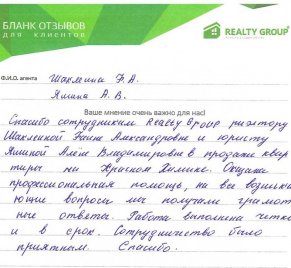 БЛАНК ОТЗЫВОВ
для клиентов
REALTY GROUP
Ф.И.О. агента
Шахлеина Ф.А.
Ялина А.В.
Ваше мнение очень важно для нас!
Спасибо сотрудникам Realty Group риэлтору
Александровне и юристу
Алёне Владимировне в продаже квар
тиры на Красном Химике. Оказана
профессиональная помощь, на все возника
ющие вопросы мы получали грамот
ные ответы. Работа выполнена четко
и в срок. Сотрудничество было
приятным. Спасибо.